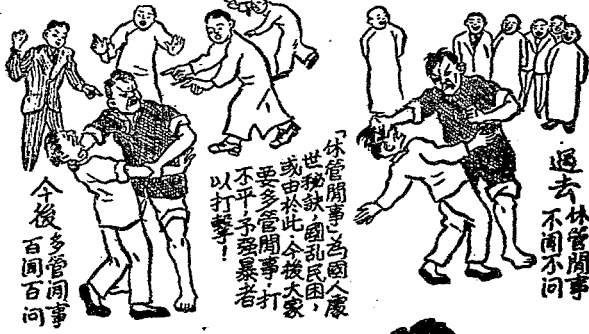 過去
休管閒事
不聞不問
「休管閒事」為國人處
世秘訣，國乱民困，
或由於此，今後大家
要多管閒事，打
不平，予强暴者
以打擊！
今後
多管閒事
百聞百問